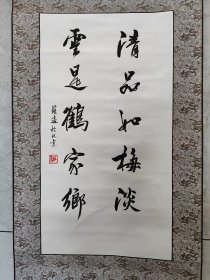 清品如梅淡
雲是鶴家鄉